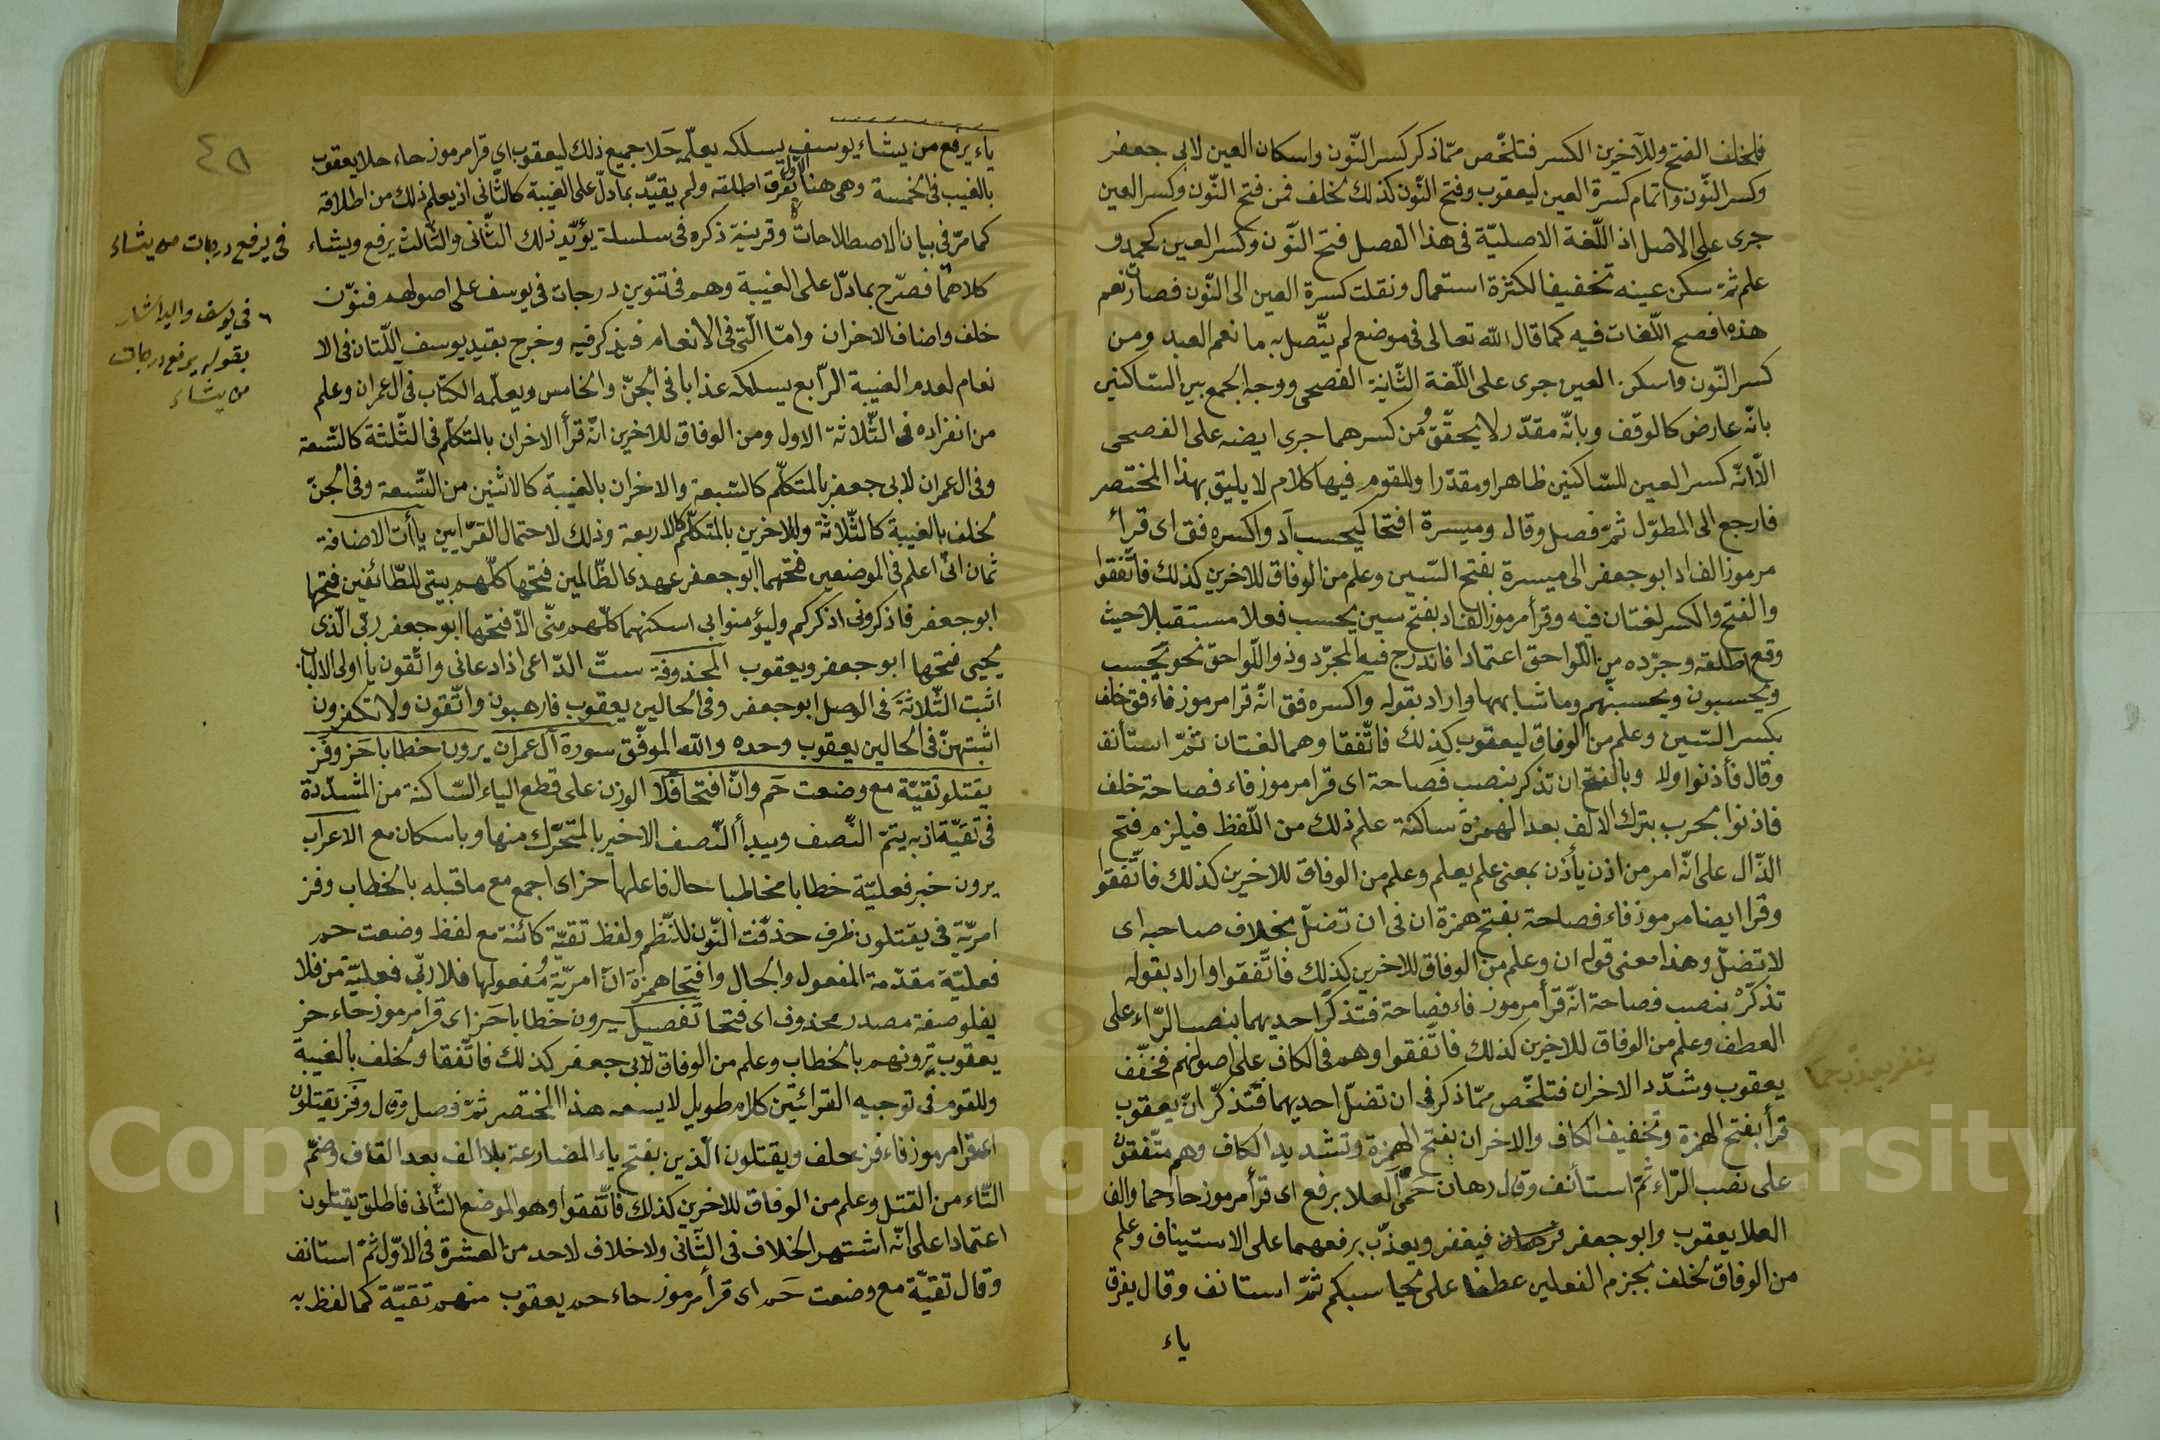 فلخلف الفتح وللآخرين الكسر فتلخّص ممّا ذكر كسر النّون واسكان العين لابي جعفر
وكسر النّون واتمام كسرة العين ليعقوب وفتح النّون كذلك لخلف فمن فتح النّون وكسر العين
جرى على الاصل اذ اللّغة الاصليّة في هذا الفصل فتح النّون وكسر العين كحمد و
علم ثمّ سكن عينه تخفيفا لكثرة استعمال ونقلت كسرة العين الى النّون فصار نعم
هذه افصح اللّغات فيه كما قال الله تعالى في موضع لم يتّصل به ما نعم العبد ومن
كسر النّون واسكن العين جرى على اللّغة الثّانية الفصحى ووجه الجمع بين السّاكنين
بانّه عارض كالوقف وبانّه مقدّر لا يحقّق ومن كسرهما جرى ايضه على الفصحى
الّا انّه كسر العين للسّاكنين ظاهرا ومقدّرا وللقوم فيها كلام لا يليق بهذا المختصر
فارجع الى المطوّل ثمّ فصل وقال وميسرة افتحا كيحسب اد واكسره فق اى قرأ
مرموز الف اد ابو جعفر الى ميسرة بفتح السّين وعلم من الوفاق للاخرين كذلك فاتّفقوا
والفتح والكسر لغتان فيه وقرأ مرموز الف اد بفتح سين يحسب فعلا مستقبلا حيث
وقع اطلقه وجرّده من اللّواحق اعتمادا فاندرج فيه المجرّد وذو اللّواحق نحو يحسب
ويحسبون ويحسبنّهم وما شابهها واراد بقوله واكسره فق انّه قرا مرموز فاء فق خلف
بكسر السّين وعلم من الوفاق ليعقوب كذلك فاتّفقا وهما لغتان ثمّ استأنف
وقال فأذنوا ولا وبالفتح ان تذكر بنصب فصاحة اى قرا مرموز فاء فصاحة خلف
فاذنوا بحرب بترك الالف بعد الهمزة ساكنة علم ذلك من اللّفظ فيلزم فتح
الذّال على انّه امر من اذن يأذن بمعنى علم يعلم وعلم من الوفاق للاخرين كذلك فاتّفقوا
وقرا ايضا مرموز فاء فصاحة بفتح همزة ان في ان تضلّ بخلاف صاحبه اى
لا تضلّ وهذا معنى قوله ان وعلم من الوفاق للاخرين كذلك فاتّفقوا واراد بقوله
تذكّر بنصب فصاحة انّه قرأ مرموز فاء فصاحة فتذكّر احديهما بنصب الرّاء على
العطف وعلم من الوفاق للاخرين كذلك فاتّفقوا وهم في الكاف على اصولهم فخفّف
يعقوب وشدّد الاخران فتلخّص ممّا ذكر في ان تضلّ احديهما فتذكّر انّ يعقوب
قرأ بفتح الهمزة وتخفيف الكاف والاخران بفتح الهمزة وتشديد الكاف وهم متّفقون
على نصب الرّاء ثمّ استأنف وقال رهان حمى العلا برفع اى قرأ مرموز حاء حما والف
العلا يعقوب وابو جعفر فرهان فيغفر ويعذّب برفعهما على الاستيناف وعلم
من الوفاق لخلف بجزم الفعلين عطفا على يحاسبكم ثمّ استانف وقال يفرق
ياء
يغفر يعذّب حما
٤٨
ياء يرفع من يشاء يوسف يسلكه يعلّمه حلا جميع ذلك ليعقوب اى قرا مرموز حاء حلا يعقوب
بالغيب في الخمسة وهي هنا نفرق الاول اطلقه ولم يقيّد بما دلّ على الغيبة كالثّاني اذ يعلم ذلك من اطلاقه
كما مرّ في بيان الاصطلاحات وقرينة ذكره في سلسلة يؤيّد ذلك الثّاني والثّالث يرفع ويشاء
كلاهما فصرّح بما دلّ على الغيبة وهم في تنوين درجات في يوسف على اصولهم فنوّن
خلف واضاف الاخران وامّا الّتى في الانعام فيذكر فيه وخرج بقيد يوسف اللّتان في الا
نعام لعدم الغيبة الرّابع يسلكه عذابا في الجنّ والخامس ويعلّمه الكتاب في ال عمران وعلم
من انفراده في الثّلاثة الاول ومن الوفاق للاخرين انّه قرأ الاخران بالمتكلّم في الثّلثة كالسّبعة
وفي ال عمران لابي جعفر بالمتكلّم كالسّبعة والاخران بالغيبة كالاثنين من السّبعة وفي الجنّ
لخلف بالغيبة كالثّلاثة وللاخرين بالمتكلّم كالاربعة وذلك لاحتمال القرّايين ياأت الاضافة
ثمان انّي اعلم في الموضعين فتحهما ابو جعفر عهدى الظّالمين فتحها كلّهم بيتى للطّائفين فتحها
ابو جعفر فاذكرونى اذكركم وليؤمنوا بى اسكنهما كلّهم منّى الّا فتحها ابو جعفر ربّى الّذى
يحيى فتحها ابو جعفر ويعقوب المحذوفة ستّ الدّاعى اذا دعانى واتّقون يا اولى الالباب
اثبت الثّلاثة في الوصل ابو جعفر وفي الحالين يعقوب فارهبون واتّقون ولا تكفرون
اثبتهنّ في الحالين يعقوب وحده والله الموفّق سورة آل عمران يرون خطابا حز وفز
يقتلو تقيّة مع وضعت حم وانّ افتحا فلا الوزن على قطع الياء السّاكنة من المشدّدة
في تقيّة اذ به يتمّ النّصف ويبدأ النّصف الاخير بالمتحرّك منها وباسكان مع الاعراب
يرون خبر فعليّة خطابا مخاطبا حال فاعلها حز اى اجمع مع ما قبله بالخطاب وفز
امريّة في يقتلون ظرف حذفت النّون للنّظم ولفظ تقيّة كائنة مع لفظ وضعت حم
فعليّة مقدّمة المفعول والحال وافتحا همزة انّ امريّة مفعولها فلا ربّى فعليّة من فلا
يفلو صفة مصدر محذوف اى فتحا تفصيل يرون خطابا حز اى قرا مرموز حاء حز
يعقوب يرونهم بالخطاب وعلم من الوفاق لابي جعفر كذلك فاتّفقا ولخلف بالغيبة
وللقوم في توجيه القرائتين كلام طويل لا يسعه هذا المختصر ثمّ فصل وقال وفز يقتلون
اى قرا مرموز فاء فز خلف ويقتلون الّذين بفتح ياء المضارعة بلا الف بعد القاف وضمّ
التّاء من القتل وعلم من الوفاق للاخرين كذلك فاتّفقوا وهو الموضع الثّاني فاطلق يقتلون
اعتمادا على انّه اشتهر الخلاف في الثّاني ولا خلاف لاحد من العشرة في الاوّل ثمّ استانف
وقال تقيّة مع وضعت حم اى قرأ مرموز حاء حم يعقوب منهم تقيّة كما لفظ به
في يرفع درجات من يشاء
في يوسف واليه اشار
بقوله يرفع درجات
من يشاء
Copyright © King Saud University